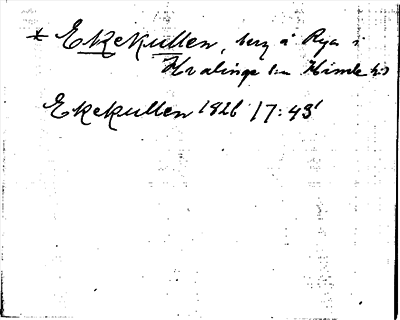 * Ekekullen, berg å Rya i
Kvalinge sn Himle hd
Ekekullen 1826 17:43'